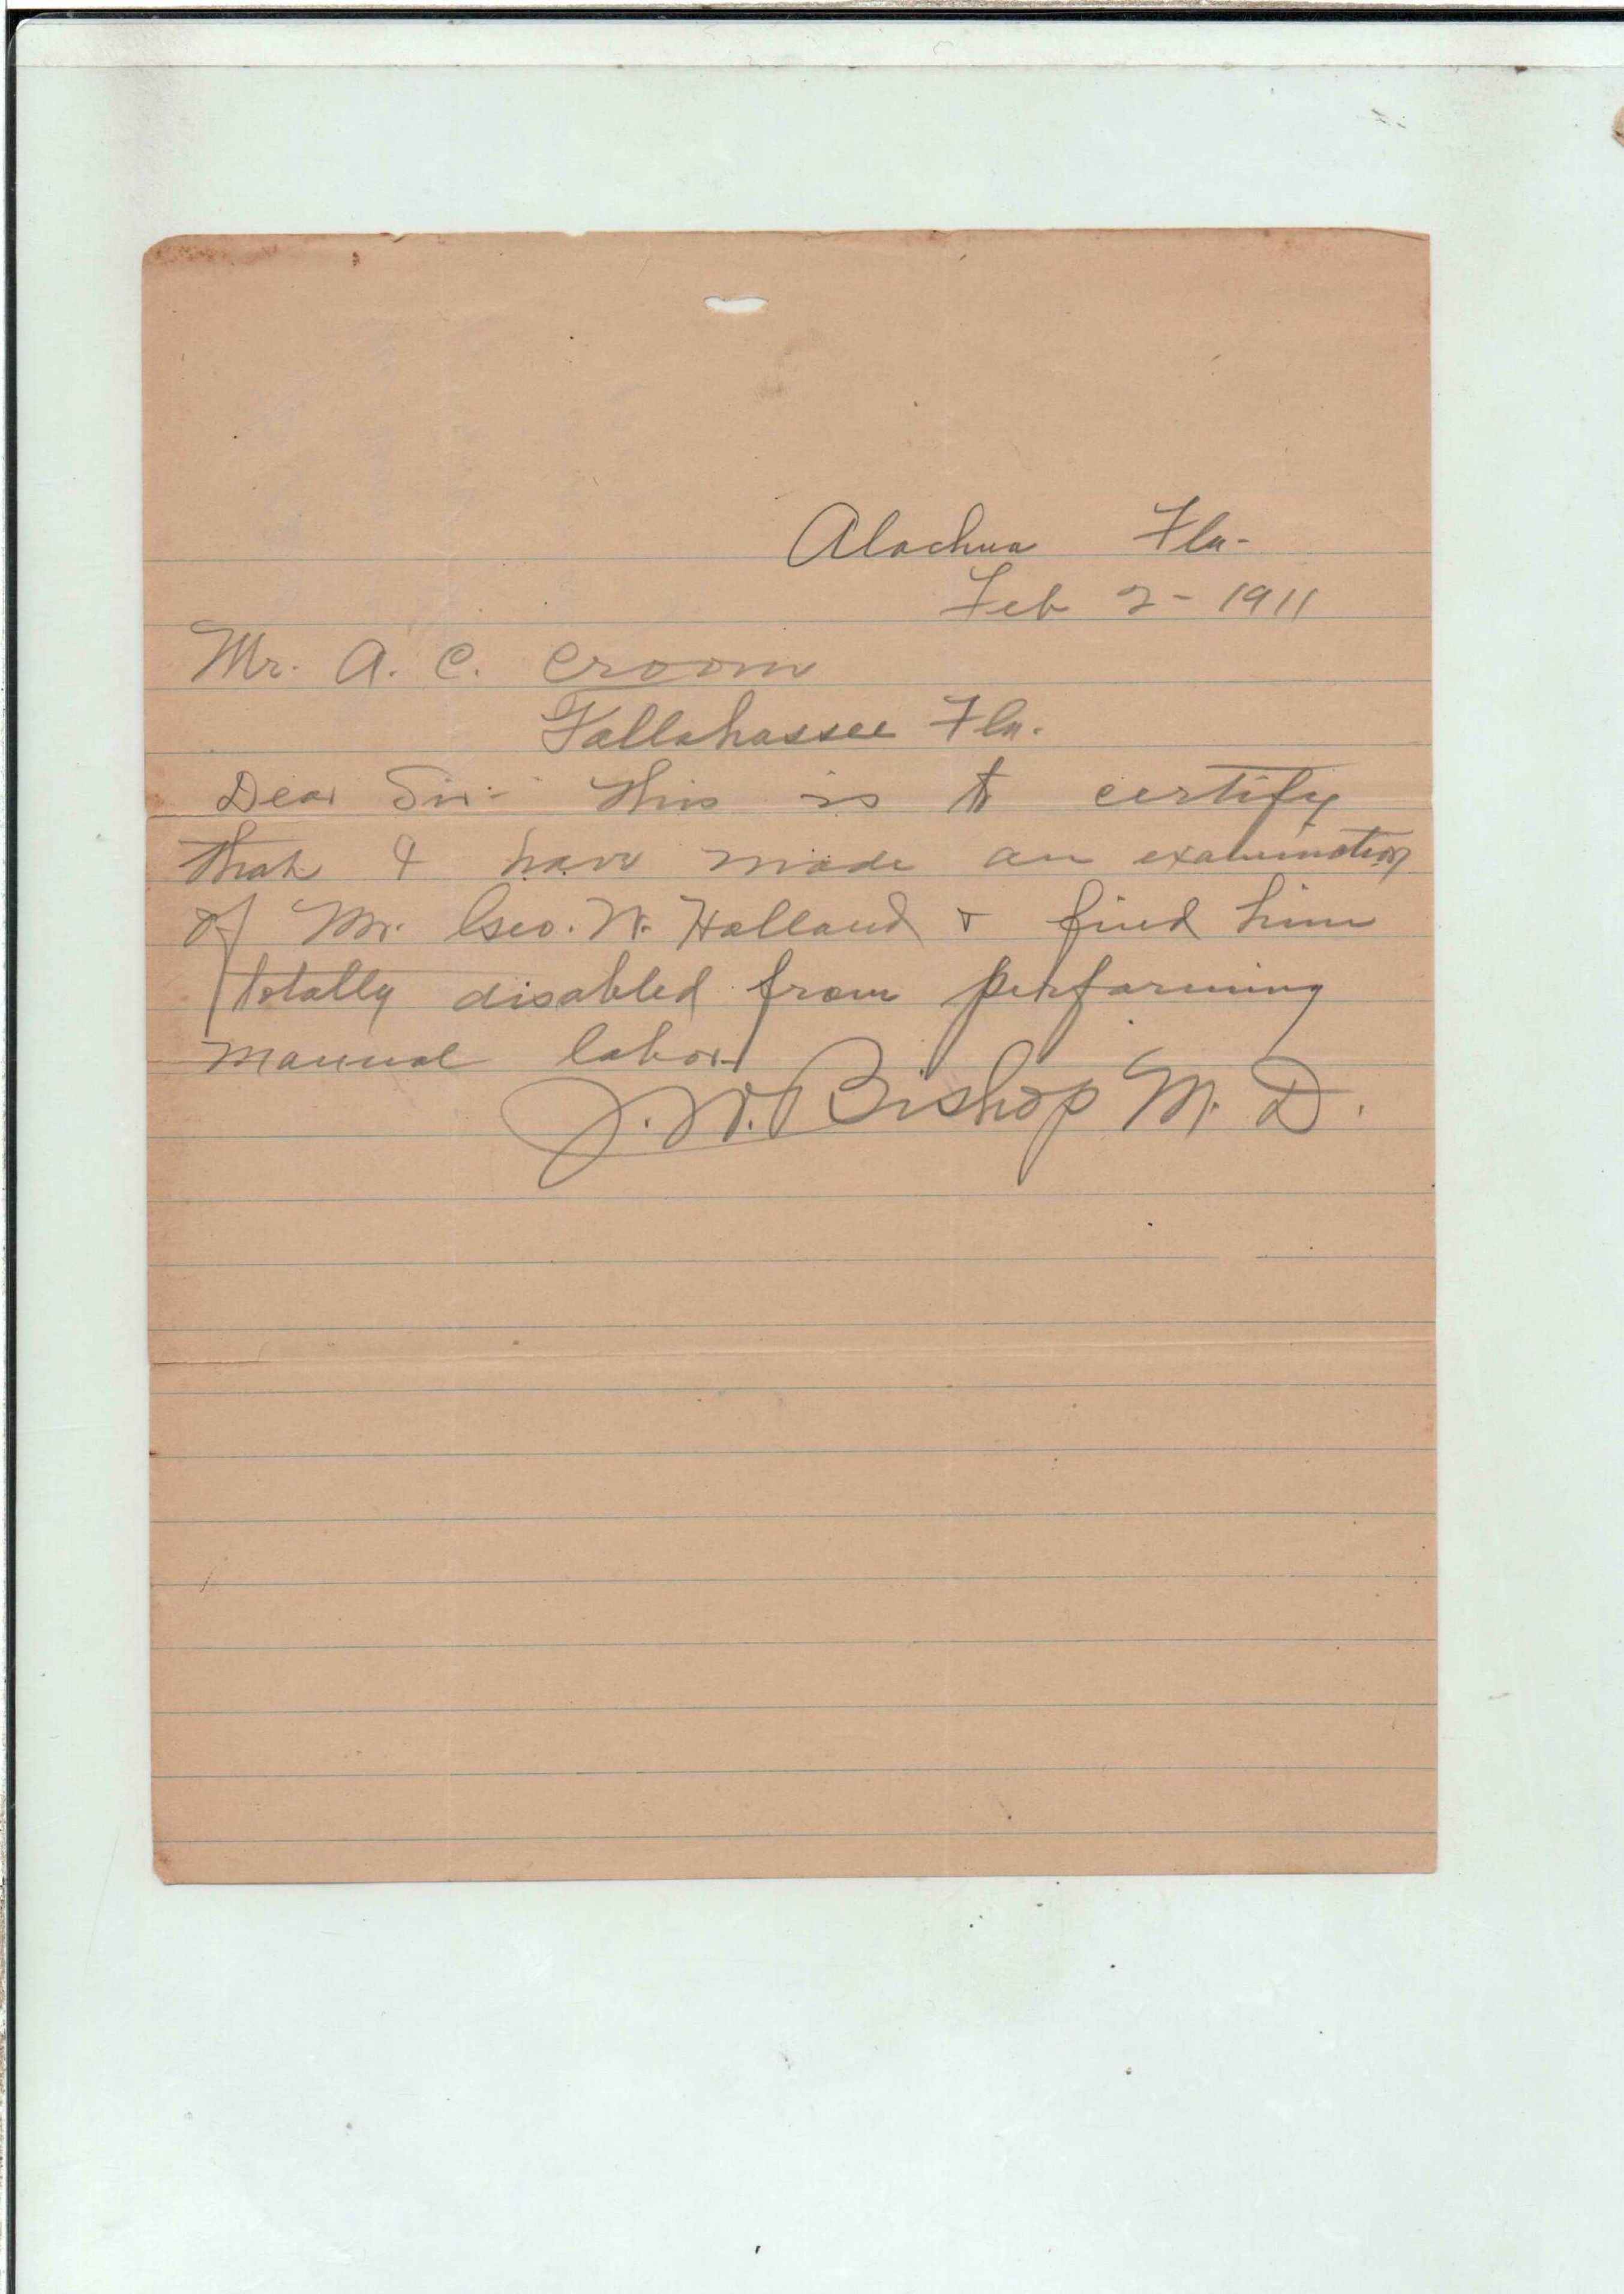 Alachua Fla-
Feb 2- 1911
Mr. A. C. Croom
Tallahassee Fla.
Dear Sir- This is to certify
that I have made an examination
of Mr. Geo. W. Holland & find him
totally disabled from performing
manual labor
J. W. Bishop M. D.